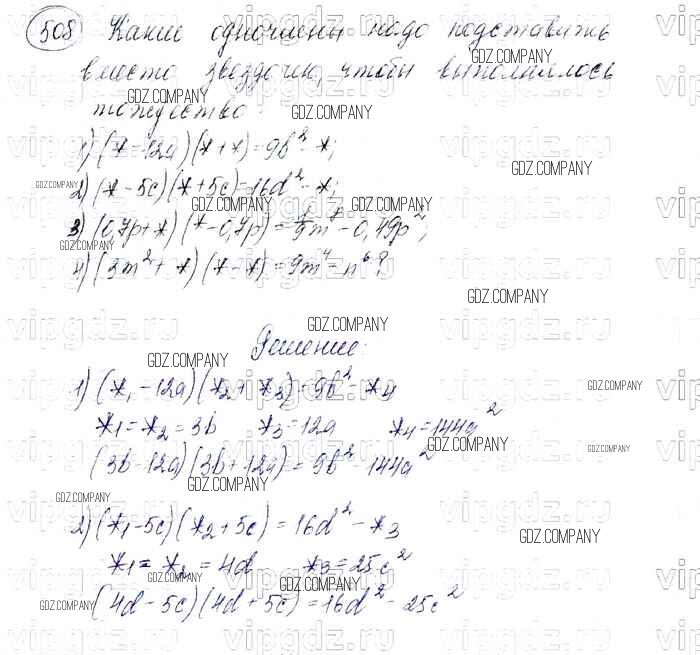 508 Какие одночлены надо подставить
вместо звездочки, чтобы выполнялось
тождество
1) (* - 12a) (* + *) = 9b² - *;
2) (* - 5c) (* + 5c) = 16d² - *;
3) (0,7p + *) (* - 0,7p) = 1/9 m⁸ - 0,49p²;
4) (3m² + *) (* - *) = 9m⁴ - n⁶?
Решение:
1) (*₁ - 12a) (*₂ + *₃) = 9b² - *₄
*₁ = *₂ = 3b *₃ = 12a *₄ = 144a²
(3b - 12a) (3b + 12a) = 9b² - 144a²
2) (*₁ - 5c) (*₂ + 5c) = 16d² - *₃
*₁ = *₂ = 4d *₃ = 25c²
(4d - 5c) (4d + 5c) = 16d² - 25c²
GDZ.COMPANY
vipgdz.ru